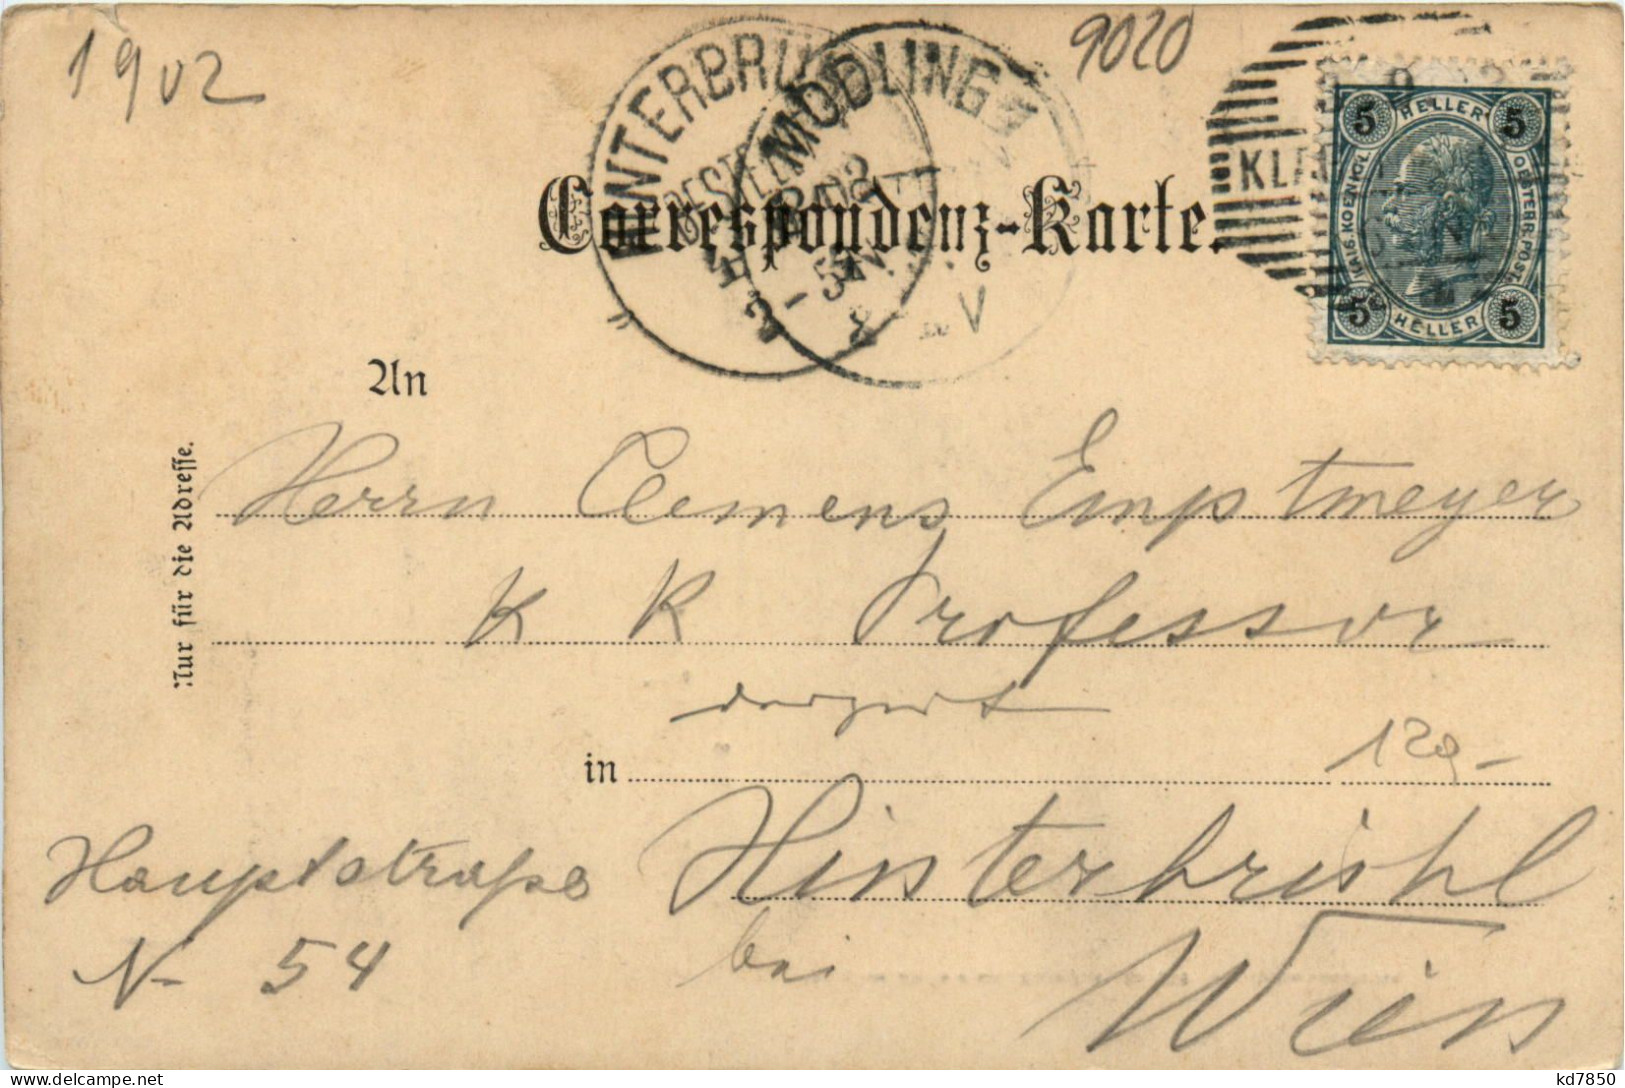 1902
9020
HINTERBRÜHL
BESTELLT
MÖDLING
3 - 5 N
KLA
5 HELLER 5
KAIS. KOENIGL. OESTERR. POST.
5 HELLER 5
Correspondenz-Karte.
An
Herrn Clemens Emptmeyer
K K Professor
derzeit
129-
in
Hinterbrühl
bei Wien
Hauptstraße
N- 54
Nur für die Adresse.
kd7850